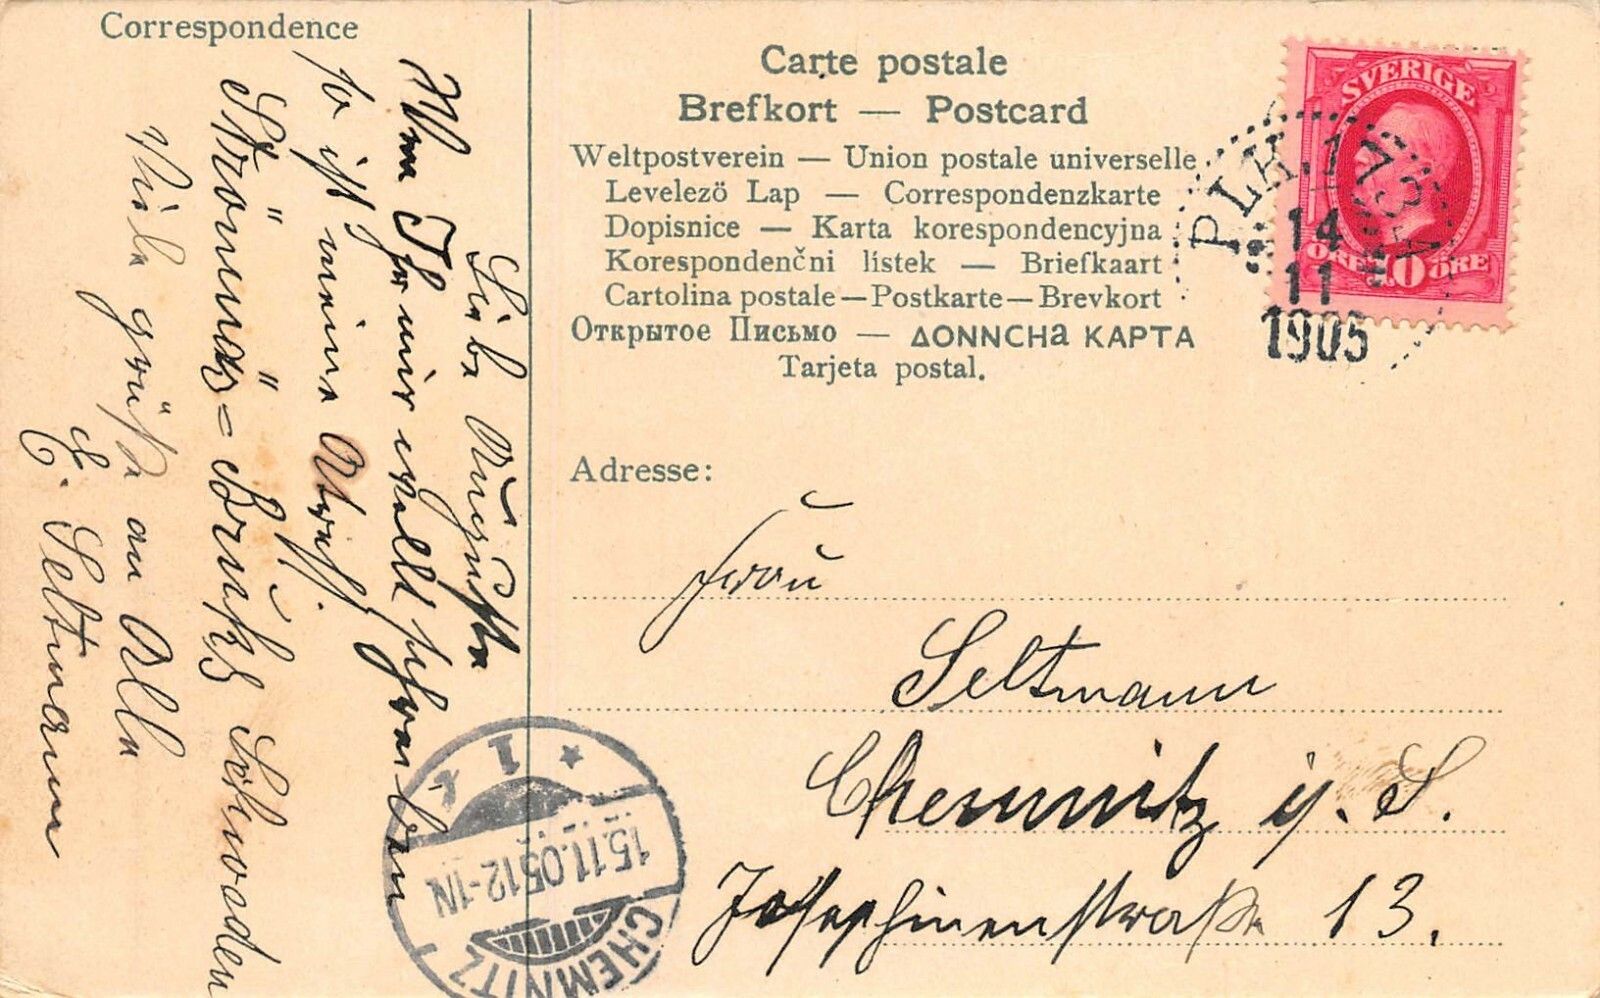 Correspondence
Liebe Auguste
Wenn Ihr mir wollt schreiben
so ist meine Adress.
Strömnäs=Bruks Schweden
Viele grüße an Alle
E. Seltmann
Carte postale
Brefkort — Postcard
Weltpostverein — Union postale universelle
Levelező Lap — Correspondenzkarte
Dopisnice — Karta korespondencyjna
Korespondenčni listek — Briefkaart
Cartolina postale — Postkarte — Brevkort
Открытое Письмо — ΔΟΝΝCHa ΚΑΡΤΑ
Tarjeta postal.
SVERIGE
10
ÖRE ÖRE
PLK.173
14
11
1905
Adresse:
Frau
Seltmann
Chemnitz i. S.
Josephinenstraße 13.
CHEMNITZ
15.11.05.12-1N
1